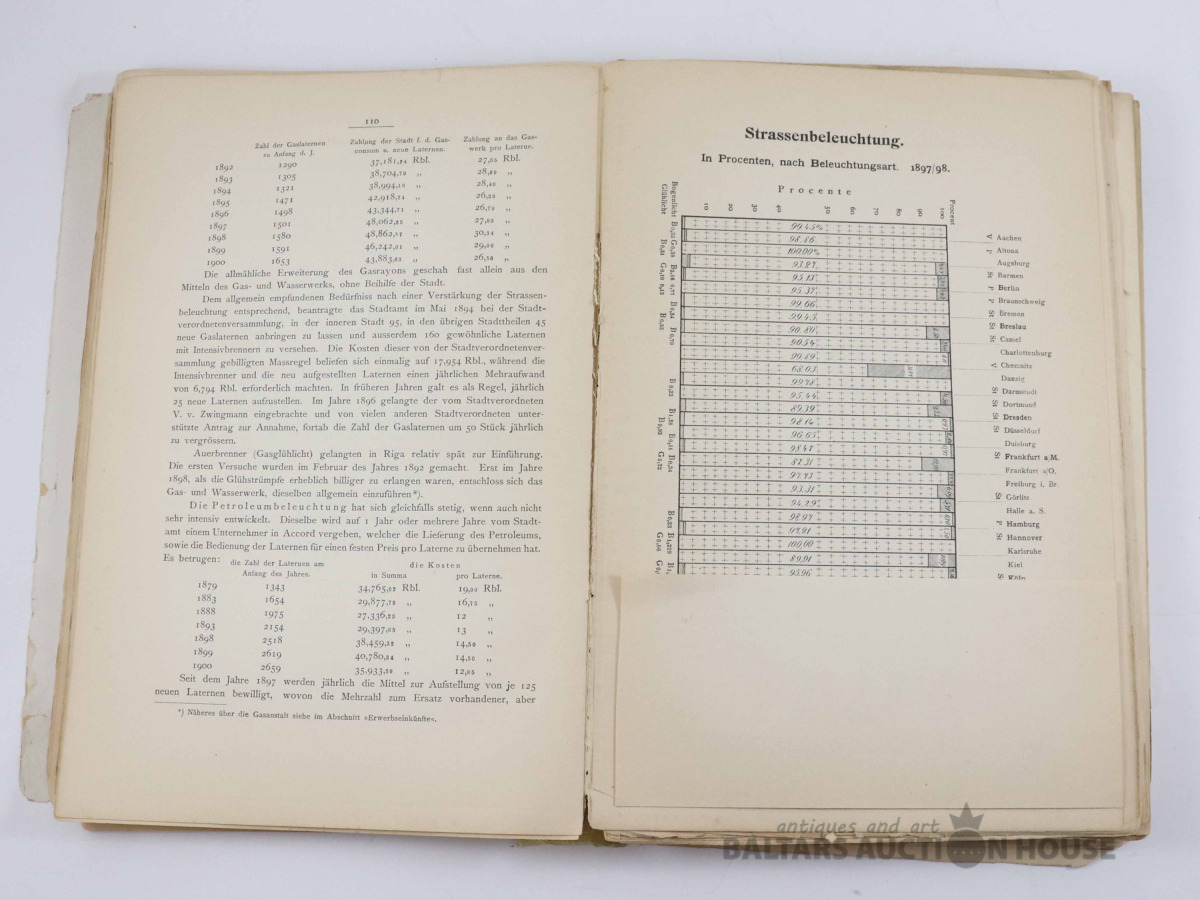 110
Zahl der Gaslaternen zu Anfang d. J. Zahlung der Stadt f. d. Gasconsum u. neue Laternen. Zahlung an das Gaswerk pro Laterne.
1892 1290 37,181,24 Rbl. 27,55 Rbl.
1893 1305 38,704,79 „
1894 1321 38,994,19 „
1895 1471 42,918,14 „
1896 1498 43,344,71 „
1897 1501 48,062,85 „
1898 1580 48,862,57 „ 30,24 „
1899 1591 46,242,21 „
1900 1653 43,883,62 „ 26,56 „
Die allmähliche Erweiterung des Gasrayons geschah fast allein aus den
Mitteln des Gas- und Wasserwerks, ohne Beihilfe der Stadt.
Dem allgemein empfundenen Bedürfniss nach einer Verstärkung der Strassen-
beleuchtung entsprechend, beantragte das Stadtamt im Mai 1894 bei der Stadt-
verordnetenversammlung, in der inneren Stadt 95, in den übrigen Stadttheilen 45
neue Gaslaternen anbringen zu lassen und ausserdem 160 gewöhnliche Laternen
mit Intensivbrennern zu versehen. Die Kosten dieser von der Stadtverordnetenver-
sammlung gebilligten Massregel beliefen sich einmalig auf 17,954 Rbl., während die
Intensivbrenner und die neu aufgestellten Laternen einen jährlichen Mehraufwand
von 6,794 Rbl. erforderlich machten. In früheren Jahren galt es als Regel, jährlich
25 neue Laternen aufzustellen. Im Jahre 1896 gelangte der vom Stadtverordneten
V. v. Zwingmann eingebrachte und von vielen anderen Stadtverordneten unter-
stützte Antrag zur Annahme, fortab die Zahl der Gaslaternen um 50 Stück jährlich
zu vergrössern.
Auerbrenner (Gasglühlicht) gelangten in Riga relativ spät zur Einführung.
Die ersten Versuche wurden im Februar des Jahres 1892 gemacht. Erst im Jahre
1898, als die Glühstrümpfe erheblich billiger zu erlangen waren, entschloss sich das
Gas- und Wasserwerk, dieselben allgemein einzuführen*).
Die Petroleumbeleuchtung hat sich gleichfalls stetig, wenn auch nicht
sehr intensiv entwickelt. Dieselbe wird auf 1 Jahr oder mehrere Jahre vom Stadt-
amt einem Unternehmer in Accord vergeben, welcher die Lieferung des Petroleums,
sowie die Bedienung der Laternen für einen festen Preis pro Laterne zu übernehmen hat.
Es betrugen: die Zahl der Laternen am Anfang des Jahres. die Kosten
in Summa pro Laterne.
1879 1343 34,765,02 Rbl. 19,50 Rbl.
1883 1654 29,877,78 „ 16,75 „
1888 1975 27,336,25 „ 12 „
1893 2154 29,397,65 „ 13 „
1898 2518 38,459,32 „ 14,50 „
1899 2619 40,780,54 „ 14,50 „
1900 2659 35,933,50 „ 12,95 „
Seit dem Jahre 1897 werden jährlich die Mittel zur Aufstellung von je 125
neuen Laternen bewilligt, wovon die Mehrzahl zum Ersatz vorhandener, aber
*) Näheres über die Gasanstalt siehe im Abschnitt »Erwerbseinkünfte«.
Strassenbeleuchtung.
In Procenten, nach Beleuchtungsart. 1897/98.
Procente
Bogenlicht
Glühlicht
10 20 30 40 50 60 70 80 90 100 Procent
99.45% V Aachen
98.86 P Altona
100.00% Augsburg
93.87 St Barmen
95.13 P Berlin
95.37 P Braunschweig
99.66 St Bremen
99.45 St Breslau
90.80 St Cassel
90.54 Charlottenburg
99.89 V Chemnitz
68.03 Danzig
99.78 St Darmstadt
95.44 St Dortmund
89.39 St Dresden
98.14 St Düsseldorf
96.65 Duisburg
98.47 St Frankfurt a/M.
87.31 Frankfurt a/O.
97.43 Freiburg i. Br.
93.31 St Görlitz
94.29 Halle a. S.
98.97 P Hamburg
97.91 St Hannover
100.00 Karlsruhe
89.91 Kiel
95.96 St Köln
antiques and art
BALTARS AUCTION HOUSE